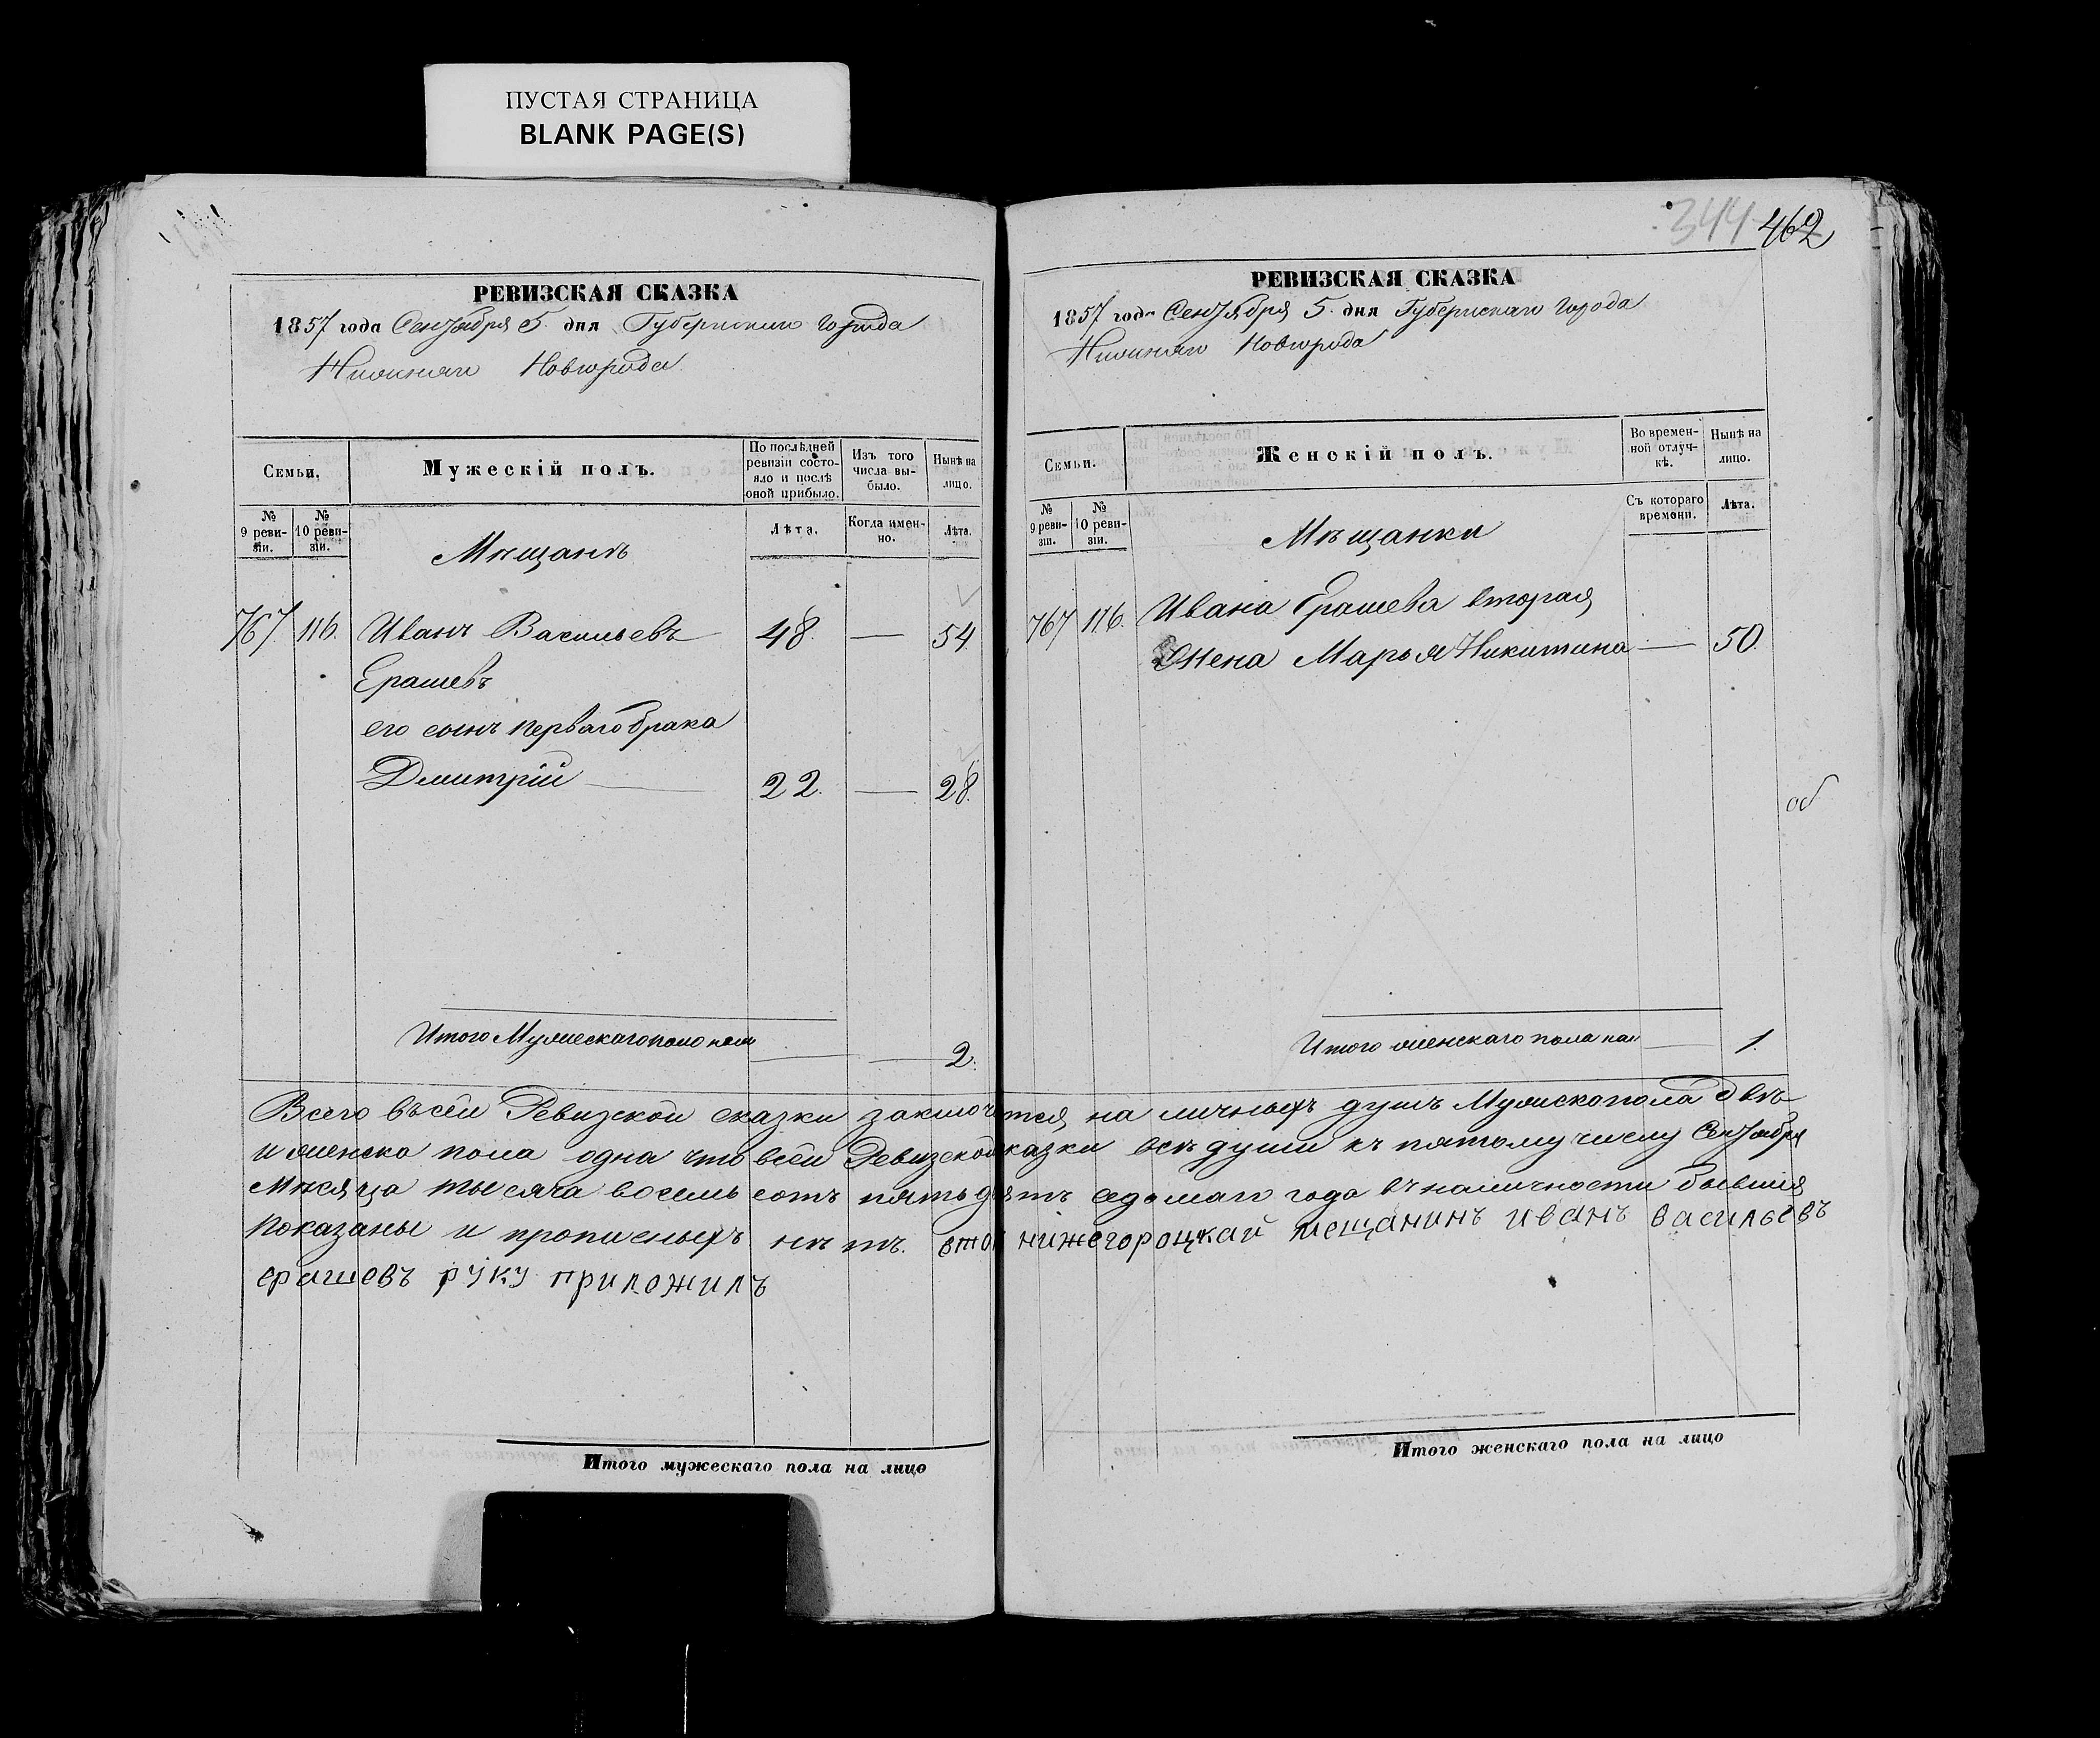 ПУСТАЯ СТРАНИЦА
BLANK PAGE(S)
344 462
РЕВИЗСКАЯ СКАЗКА
1857 года Сентября 5. дня Губернскаго города
Нижняго Новгорода
Семьи.
Мужескій полъ.
По послѣдней ревизіи состояло и послѣ оной прибыло.
Изъ того числа выбыло.
Нынѣ на лицо.
№ 9 ревизіи.
№ 10 ревизіи.
Мѣщанъ
Лѣта.
Когда именно.
Лѣта.
767 116. Иванъ Васильевъ 48. — 54.
Ерашевъ
его сынъ перваго брака
Дмитрій — 22. — 28.
Итого Мужескаго пола на ли — — 2.
РЕВИЗСКАЯ СКАЗКА
1857 года Сентября 5. дня Губернскаго города
Нижняго Новгорода
Семьи.
Женскій полъ.
Во временной отлучкѣ.
Нынѣ на лицо.
№ 9 ревизіи.
№ 10 ревизіи.
Мѣщанки
Съ котораго времени.
Лѣта.
767 116. Ивана Ерашева вторая
Жена Марья Никитина — 50.
об
Итого женскаго пола на — 1.
Всего въ сей Ревизской сказки заключится на личныхъ душъ Мужскопола двѣ
и женско пола одна что всей Ревизской сказки всѣ души къ пятому числу Сентября
Мѣсяца тысяча восемь сотъ пятьдятъ седомаго года въ наличности бывшія
показаны и прописныхъ нѣтъ. нижегороцкай мещанинъ иванъ васильевъ
ерашевъ руку приложилъ
Итого мужескаго пола на лицо
Итого женскаго пола на лицо